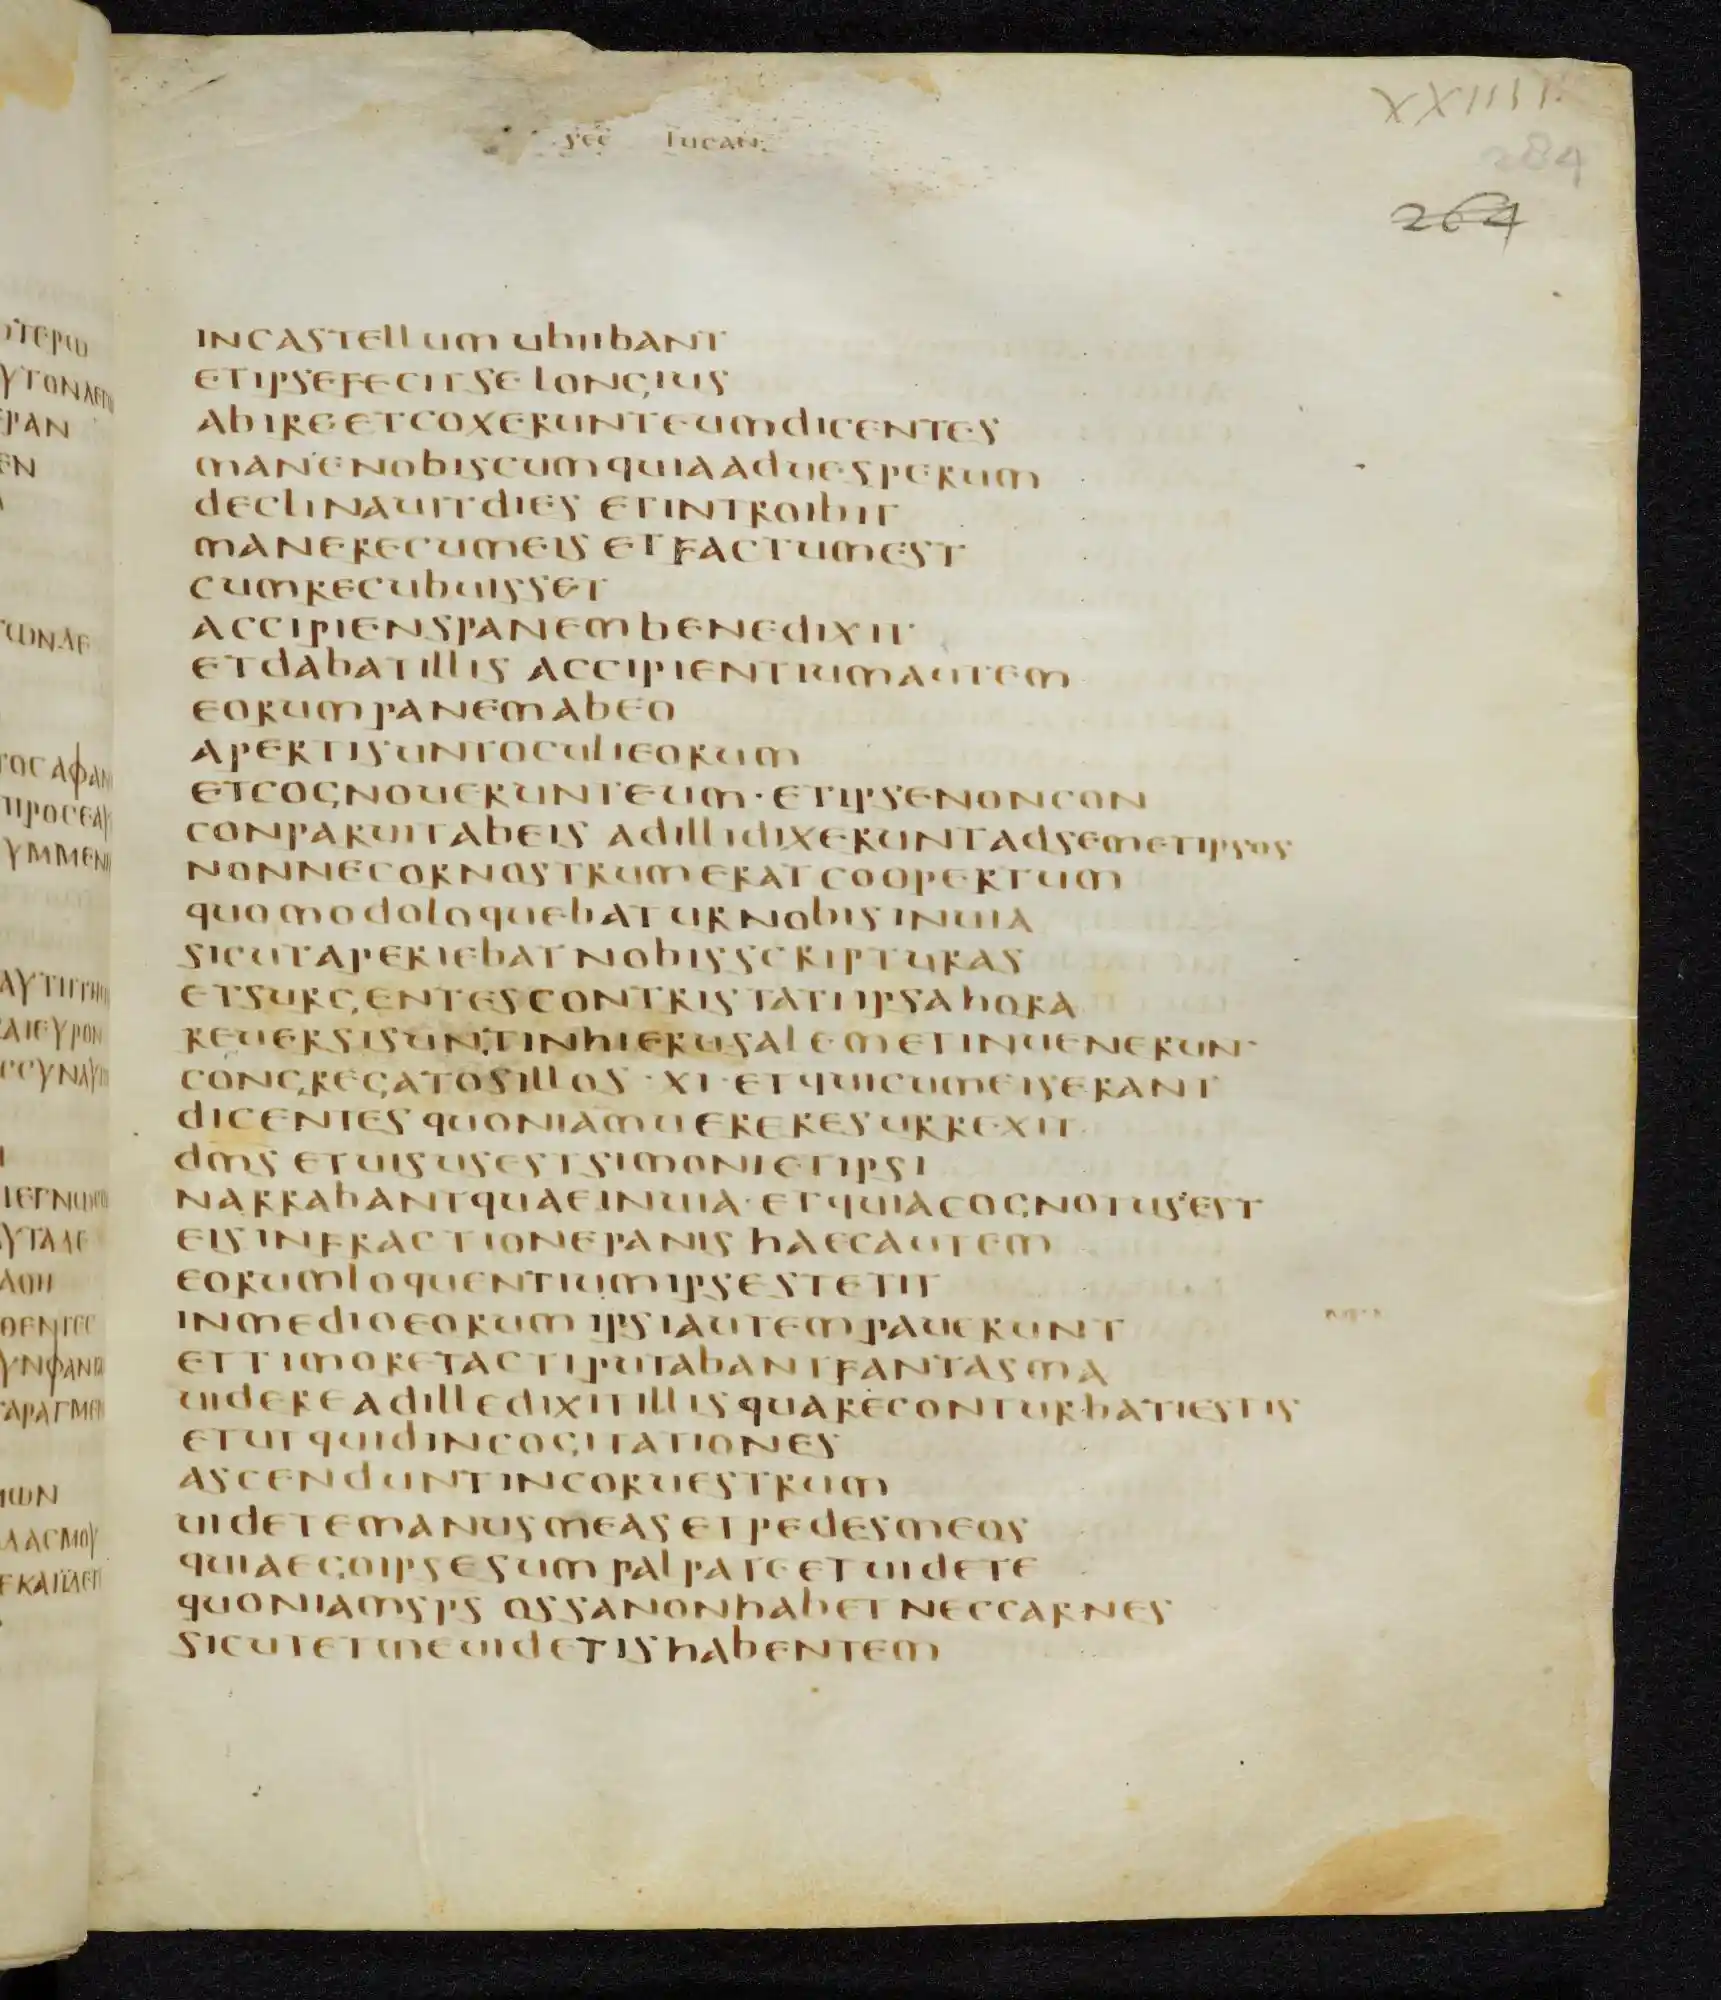 XXIIII.
sec lucan
284
264
INCASTELLUM UBI IBANT
ET IPSE FECIT SE LONGIUS
ABIRE ET COXERUNT EUM DICENTES
MANE NOBISCUM QUIA AD UESPERUM
DECLINAUIT DIES ET INTROIBIT
MANERE CUM EIS ET FACTUM EST
CUM RECUBUISSET
ACCIPIENS PANEM BENEDIXIT
ET DABAT ILLIS ACCIPIENTIUM AUTEM
EORUM PANEM AB EO
APERTI SUNT OCULI EORUM
ET COGNOUERUNT EUM · ET IPSE NON CON
CONPARUIT AB EIS AD ILLI DIXERUNT AD SEMETIPSOS
NONNE COR NOSTRUM ERAT COOPERTUM
QUOMODO LOQUEBATUR NOBIS IN UIA
SICUT APERIEBAT NOBIS SCRIPTURAS
ET SURGENTES CONTRISTATI IPSA HORA
REUERSI SUNT IN HIERUSALEM ET INUENERUN
CONGREGATOS ILLOS · XI · ET QUI CUM EIS ERANT
DICENTES QUONIAM UERE RESURREXIT
DMS ET UISUS EST SIMONI ET IPSI
NARRABANT QUAE IN UIA · ET QUIA COGNOTUS EST
EIS IN FRACTIONE PANIS HAEC AUTEM
EORUM LOQUENTIUM IPSE STETIT
IN MEDIO EORUM IPSI AUTEM PAUERUNT
ET TIMORE TACTI PUTABANT FANTASMA
UIDERE AD ILLE DIXIT ILLIS QUARE CONTURBATI ESTIS
ET UT QUID IN COGITATIONES
ASCENDUNT IN COR UESTRUM
UIDETE MANUS MEAS ET PEDES MEOS
QUIA EGO IPSE SUM PALPATE ET UIDETE
QUONIAM SPS OSSA NON HABET NEC CARNES
SICUT ET ME UIDETIS HABENTEM